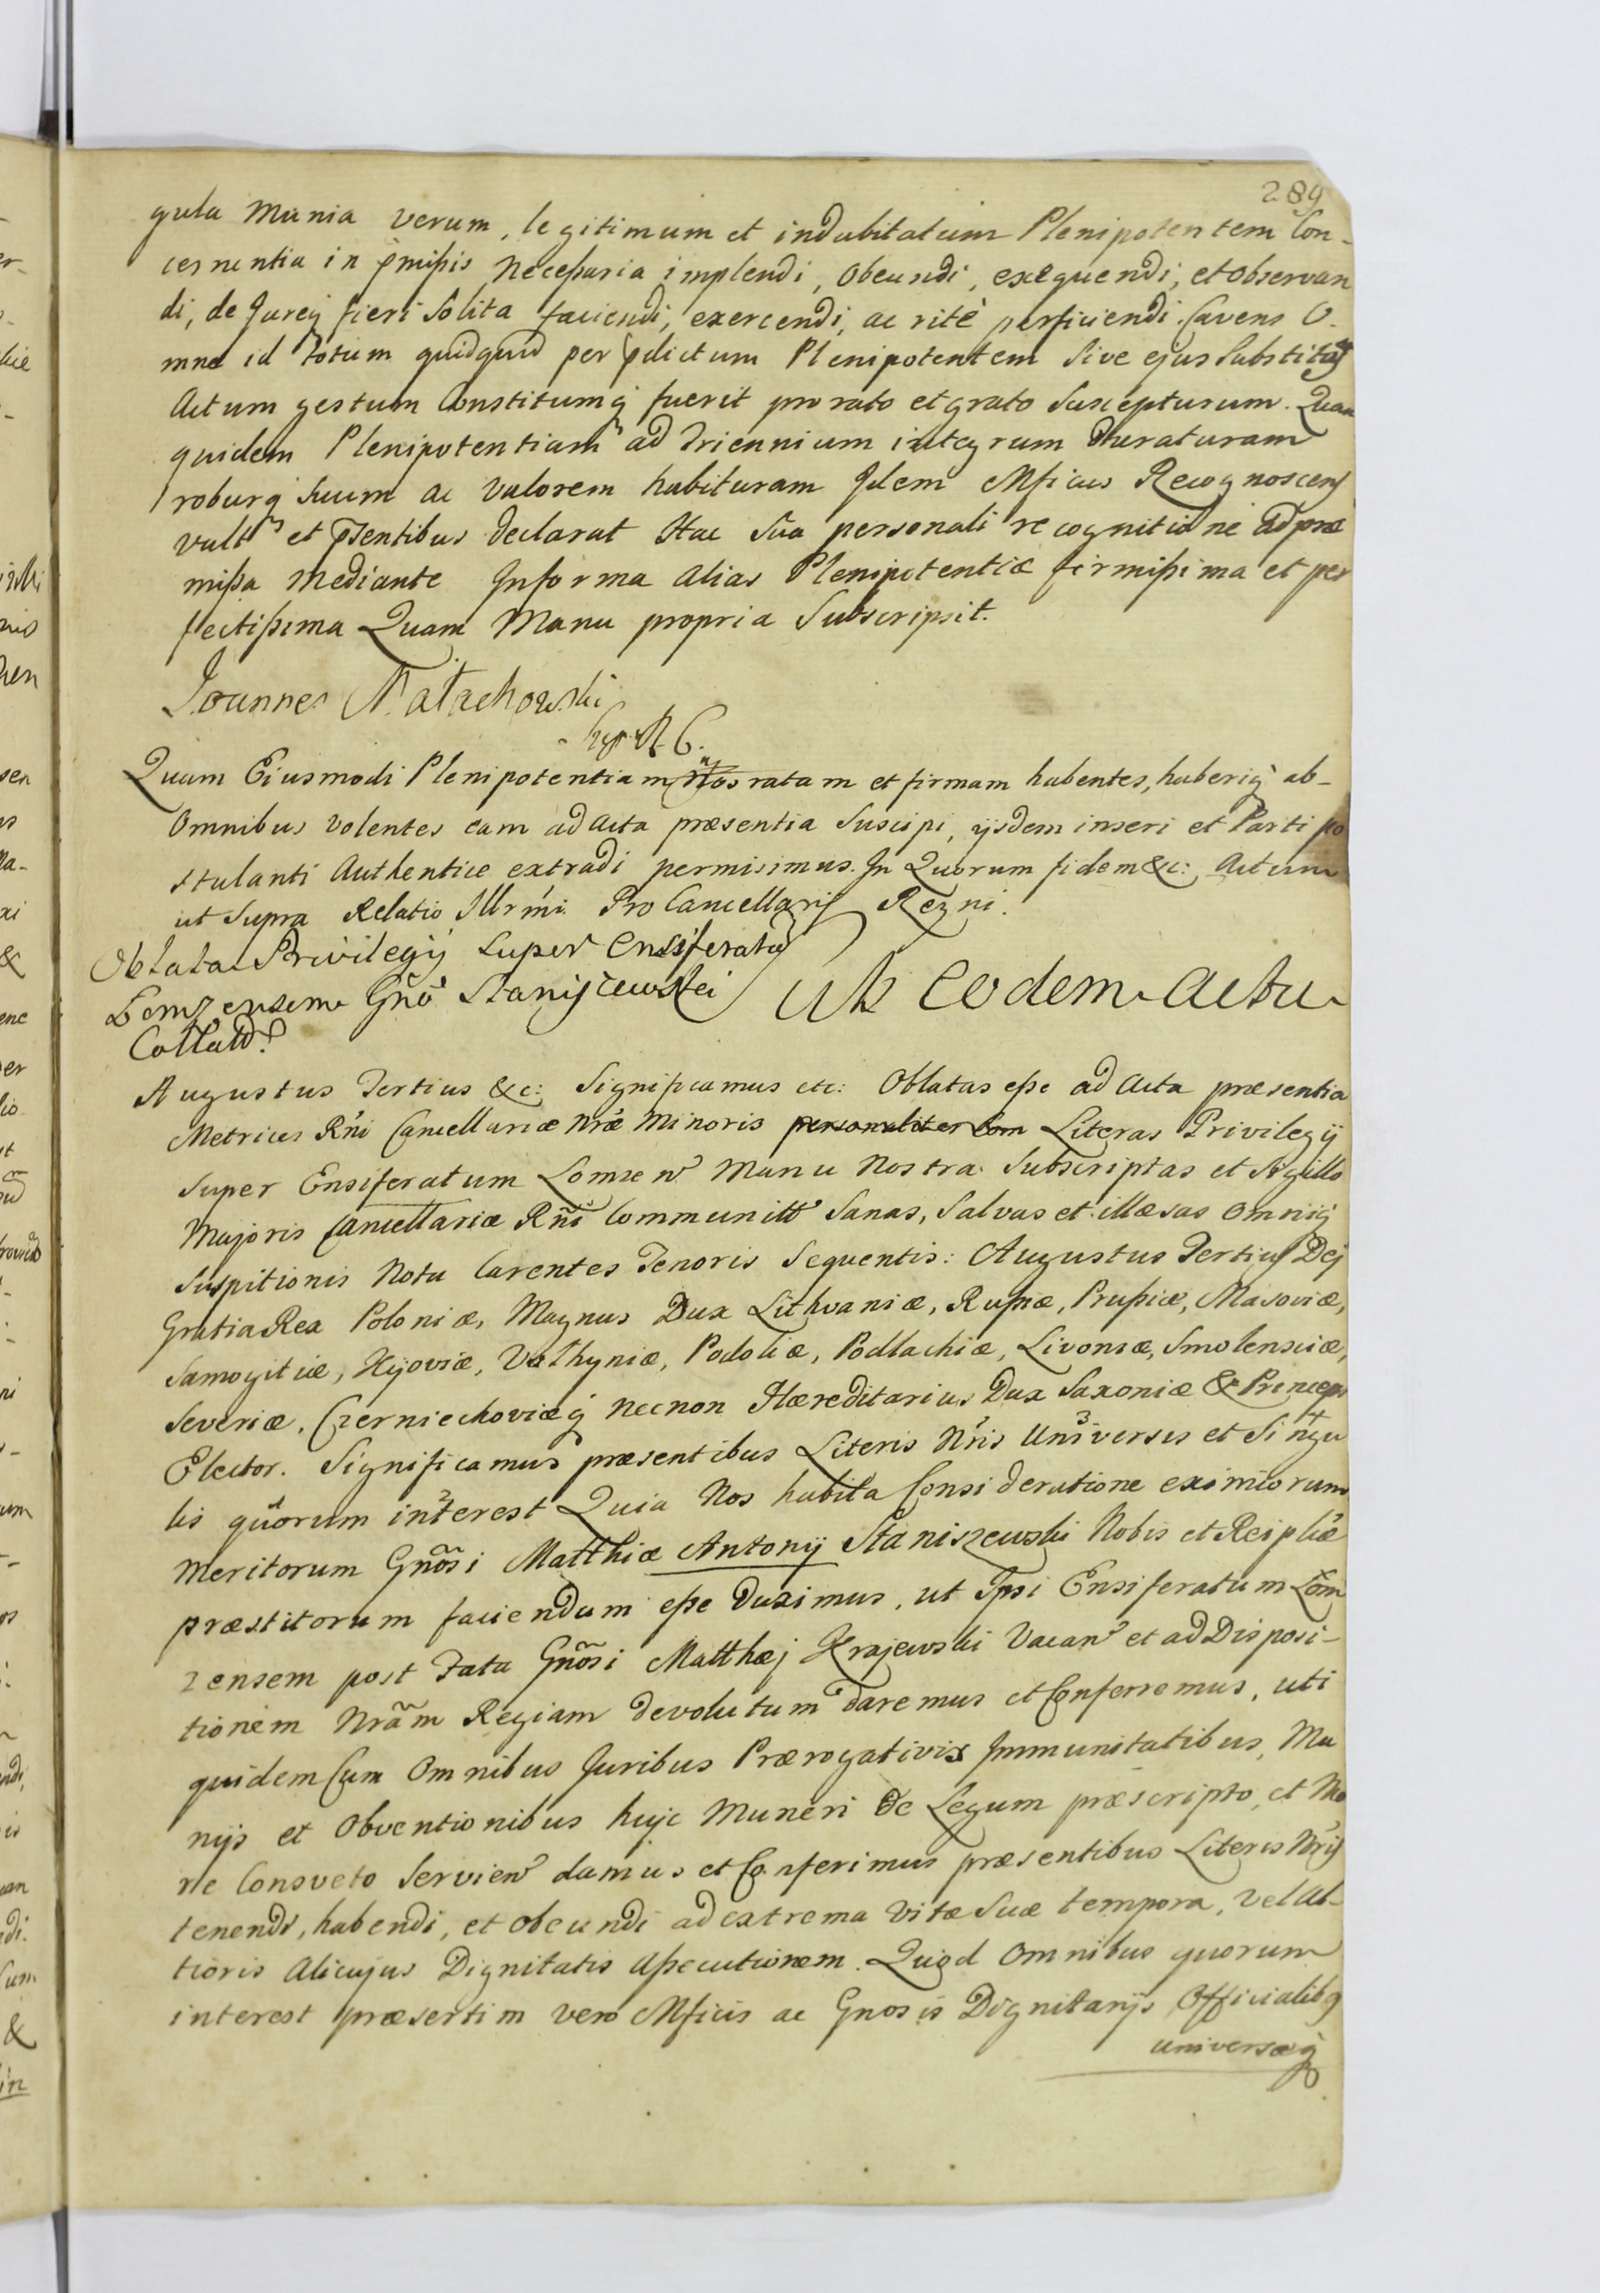 289
gula Munia verum, legitimum et indubitatum Plenipotentem Con-
cernentia in pmißis Neceßaria implendi, Obeundi, exequendi, et Observan
di, de Jureq fieri Solita faciendi, exercendi, ac ritè perficiendi. Cavens O-
mne id totum quidquid per pdictum Plenipotentem Sive ejus Substitūtū
Actum gestum Constitumq fuerit pro rato et grato Suscepturum. Quam
quidem Plenipotentiam ad Triennium integrum Duraturam
roburq Suum ac Valorem habituram Idem Mficus Recognoscens
vult et pntibus Declarat Hac Sua personali recognitione ad præ
mißa Mediante Informa Alias Plenipotentiæ firmißima et per
fectißima Quam Manu propria Subscripsit.
Joannes Małachowski
Quam Eiusmodi Plenipotentiam Nos ratam et firmam habentes, haberiq ab-
Omnibus Volentes eam ad Acta præsentia Suscipi, ijsdem inseri et Parti po
stulanti Authentice extradi permisimus. In Quorum fidem &c: Actum
ut Supra Relatio Illrmi Pro Cancellarij Regni.
Oblata Privilegij Super Ensiferatū
Lomzensem Gñō Staniszewski
Collatū.
Ut Eodem Actu
Augustus Tertius &c: Significamus etc: Oblatas eße ad Acta præsentia
Metrices Rñi Cancellariæ Nræ Minoris personaliter Com Literas Privilegij
Super Ensiferatum Lomzen Manu Nostra Subscriptas et Sigillo
Majoris Cancellariæ Rñi Communitt Sanas, Salvas et illæsas Omniq
Suspitionis Nota Carentes Tenoris Sequentis: Augustus Tertius Dej
Gratia Rex Poloniæ, Magnus Dux Lithvaniæ, Rußiæ, Prußiæ, Masoviæ,
Samogitiæ, Kijoviæ, Volhyniæ, Podoliæ, Podlachiæ, Livoniæ, Smolensciæ,
Severiæ, Czerniechoviæq necnon Hæreditarius Dux Saxoniæ & Princeps
Elector. Significamus præsentibus Literis Nris Universis et Singu
lis quorum interest Quia Nos habita Consideratione eximiorum
Meritorum Gnosi Matthiæ Antonij Staniszewski Nobis et Reiplicæ
præstitorum faciendum eße Duximus, ut Ipsi Ensiferatum Lom
zensem post Fata Gnosi Matthæj Krajewski Vacan et ad Disposi-
tionem Nram Regiam devolutum daremus et Conferremus, uti
quidem Cum Omnibus Juribus Prærogativis Immunitatibus, Mu
nijs et Obventionibus hujc Muneri de Legum præscripto, et Mo
re Consveto Servien damus et Conferimus præsentibus Literis Nris
tenendi, habendi, et obeundi ad extrema Vitæ Suæ tempora, Vel Al-
tioris Alicujus Dignitatis Aßecutionem. Quod Omnibus quorum
interest præsertim vero Mficis ac Gnosis Dignitarijs Officialibq
universæq